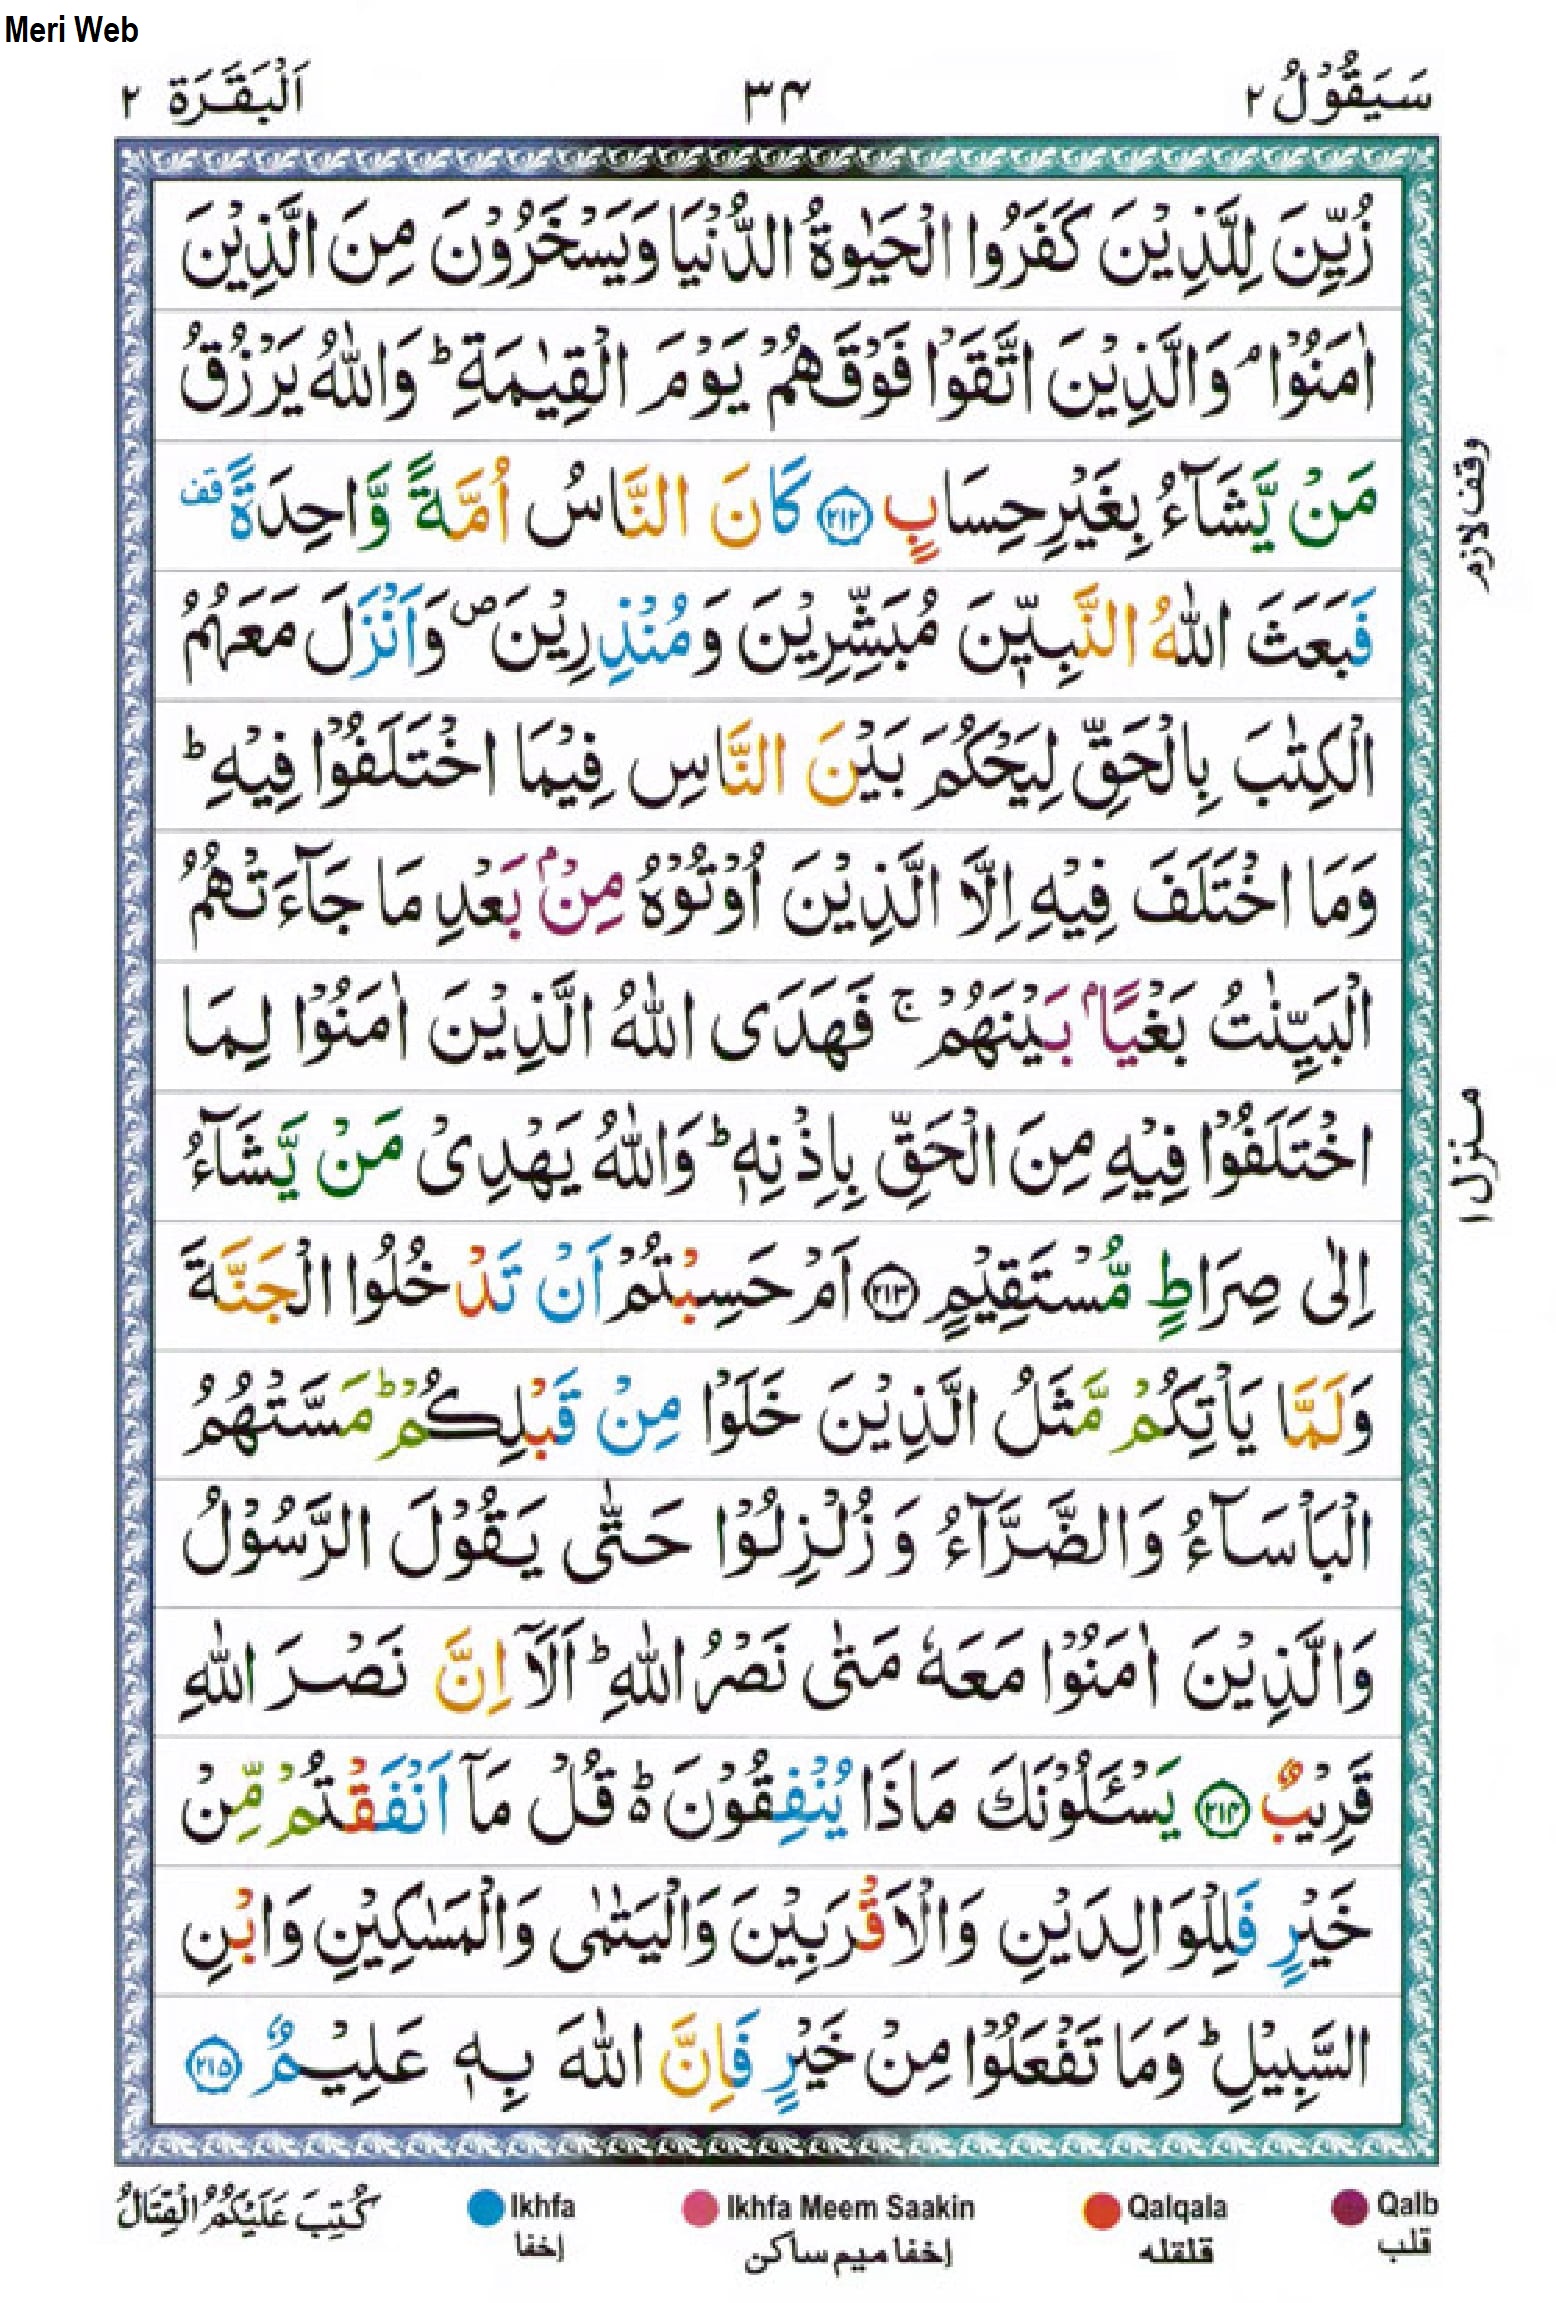 Meri Web
سَيَقُوْلُ ٢
٣٤
اَلْبَقَرَة ٢
زُيِّنَ لِلَّذِيْنَ كَفَرُوا الْحَيٰوةُ الدُّنْيَا وَيَسْخَرُوْنَ مِنَ الَّذِيْنَ
اٰمَنُوْا ۘ وَالَّذِيْنَ اتَّقَوْا فَوْقَهُمْ يَوْمَ الْقِيٰمَةِ ؕ وَاللّٰهُ يَرْزُقُ
مَنْ يَّشَآءُ بِغَيْرِ حِسَابٍ ﴿۲۱۲﴾ كَانَ النَّاسُ اُمَّةً وَّاحِدَةً قف
وقف لازم
فَبَعَثَ اللّٰهُ النَّبِيّٖنَ مُبَشِّرِيْنَ وَمُنْذِرِيْنَ ۪ وَاَنْزَلَ مَعَهُمُ
الْكِتٰبَ بِالْحَقِّ لِيَحْكُمَ بَيْنَ النَّاسِ فِيْمَا اخْتَلَفُوْا فِيْهِ ؕ
وَمَا اخْتَلَفَ فِيْهِ اِلَّا الَّذِيْنَ اُوْتُوْهُ مِنْۢ بَعْدِ مَا جَآءَتْهُمُ
الْبَيِّنٰتُ بَغْيًاۢ بَيْنَهُمْ ۚ فَهَدَى اللّٰهُ الَّذِيْنَ اٰمَنُوْا لِمَا
اخْتَلَفُوْا فِيْهِ مِنَ الْحَقِّ بِاِذْنِهٖ ؕ وَاللّٰهُ يَهْدِىْ مَنْ يَّشَآءُ
منزل ١
اِلٰى صِرَاطٍ مُّسْتَقِيْمٍ ﴿۲۱۳﴾ اَمْ حَسِبْتُمْ اَنْ تَدْخُلُوا الْجَنَّةَ
وَلَمَّا يَاْتِكُمْ مَّثَلُ الَّذِيْنَ خَلَوْا مِنْ قَبْلِكُمْ ؕ مَسَّتْهُمُ
الْبَاْسَآءُ وَالضَّرَّآءُ وَزُلْزِلُوْا حَتّٰى يَقُوْلَ الرَّسُوْلُ
وَالَّذِيْنَ اٰمَنُوْا مَعَهٗ مَتٰى نَصْرُ اللّٰهِ ؕ اَلَاۤ اِنَّ نَصْرَ اللّٰهِ
قَرِيْبٌ ﴿۲۱۴﴾ يَسْـَٔلُوْنَكَ مَاذَا يُنْفِقُوْنَ ؕ قُلْ مَاۤ اَنْفَقْتُمْ مِّنْ
خَيْرٍ فَلِلْوَالِدَيْنِ وَالْاَقْرَبِيْنَ وَالْيَتٰمٰى وَالْمَسٰكِيْنِ وَابْنِ
السَّبِيْلِ ؕ وَمَا تَفْعَلُوْا مِنْ خَيْرٍ فَاِنَّ اللّٰهَ بِهٖ عَلِيْمٌ ﴿۲۱۵﴾
كُتِبَ عَلَيْكُمُ الْقِتَالُ
Ikhfa
اخفا
Ikhfa Meem Saakin
اخفا میم ساکن
Qalqala
قلقله
Qalb
قلب